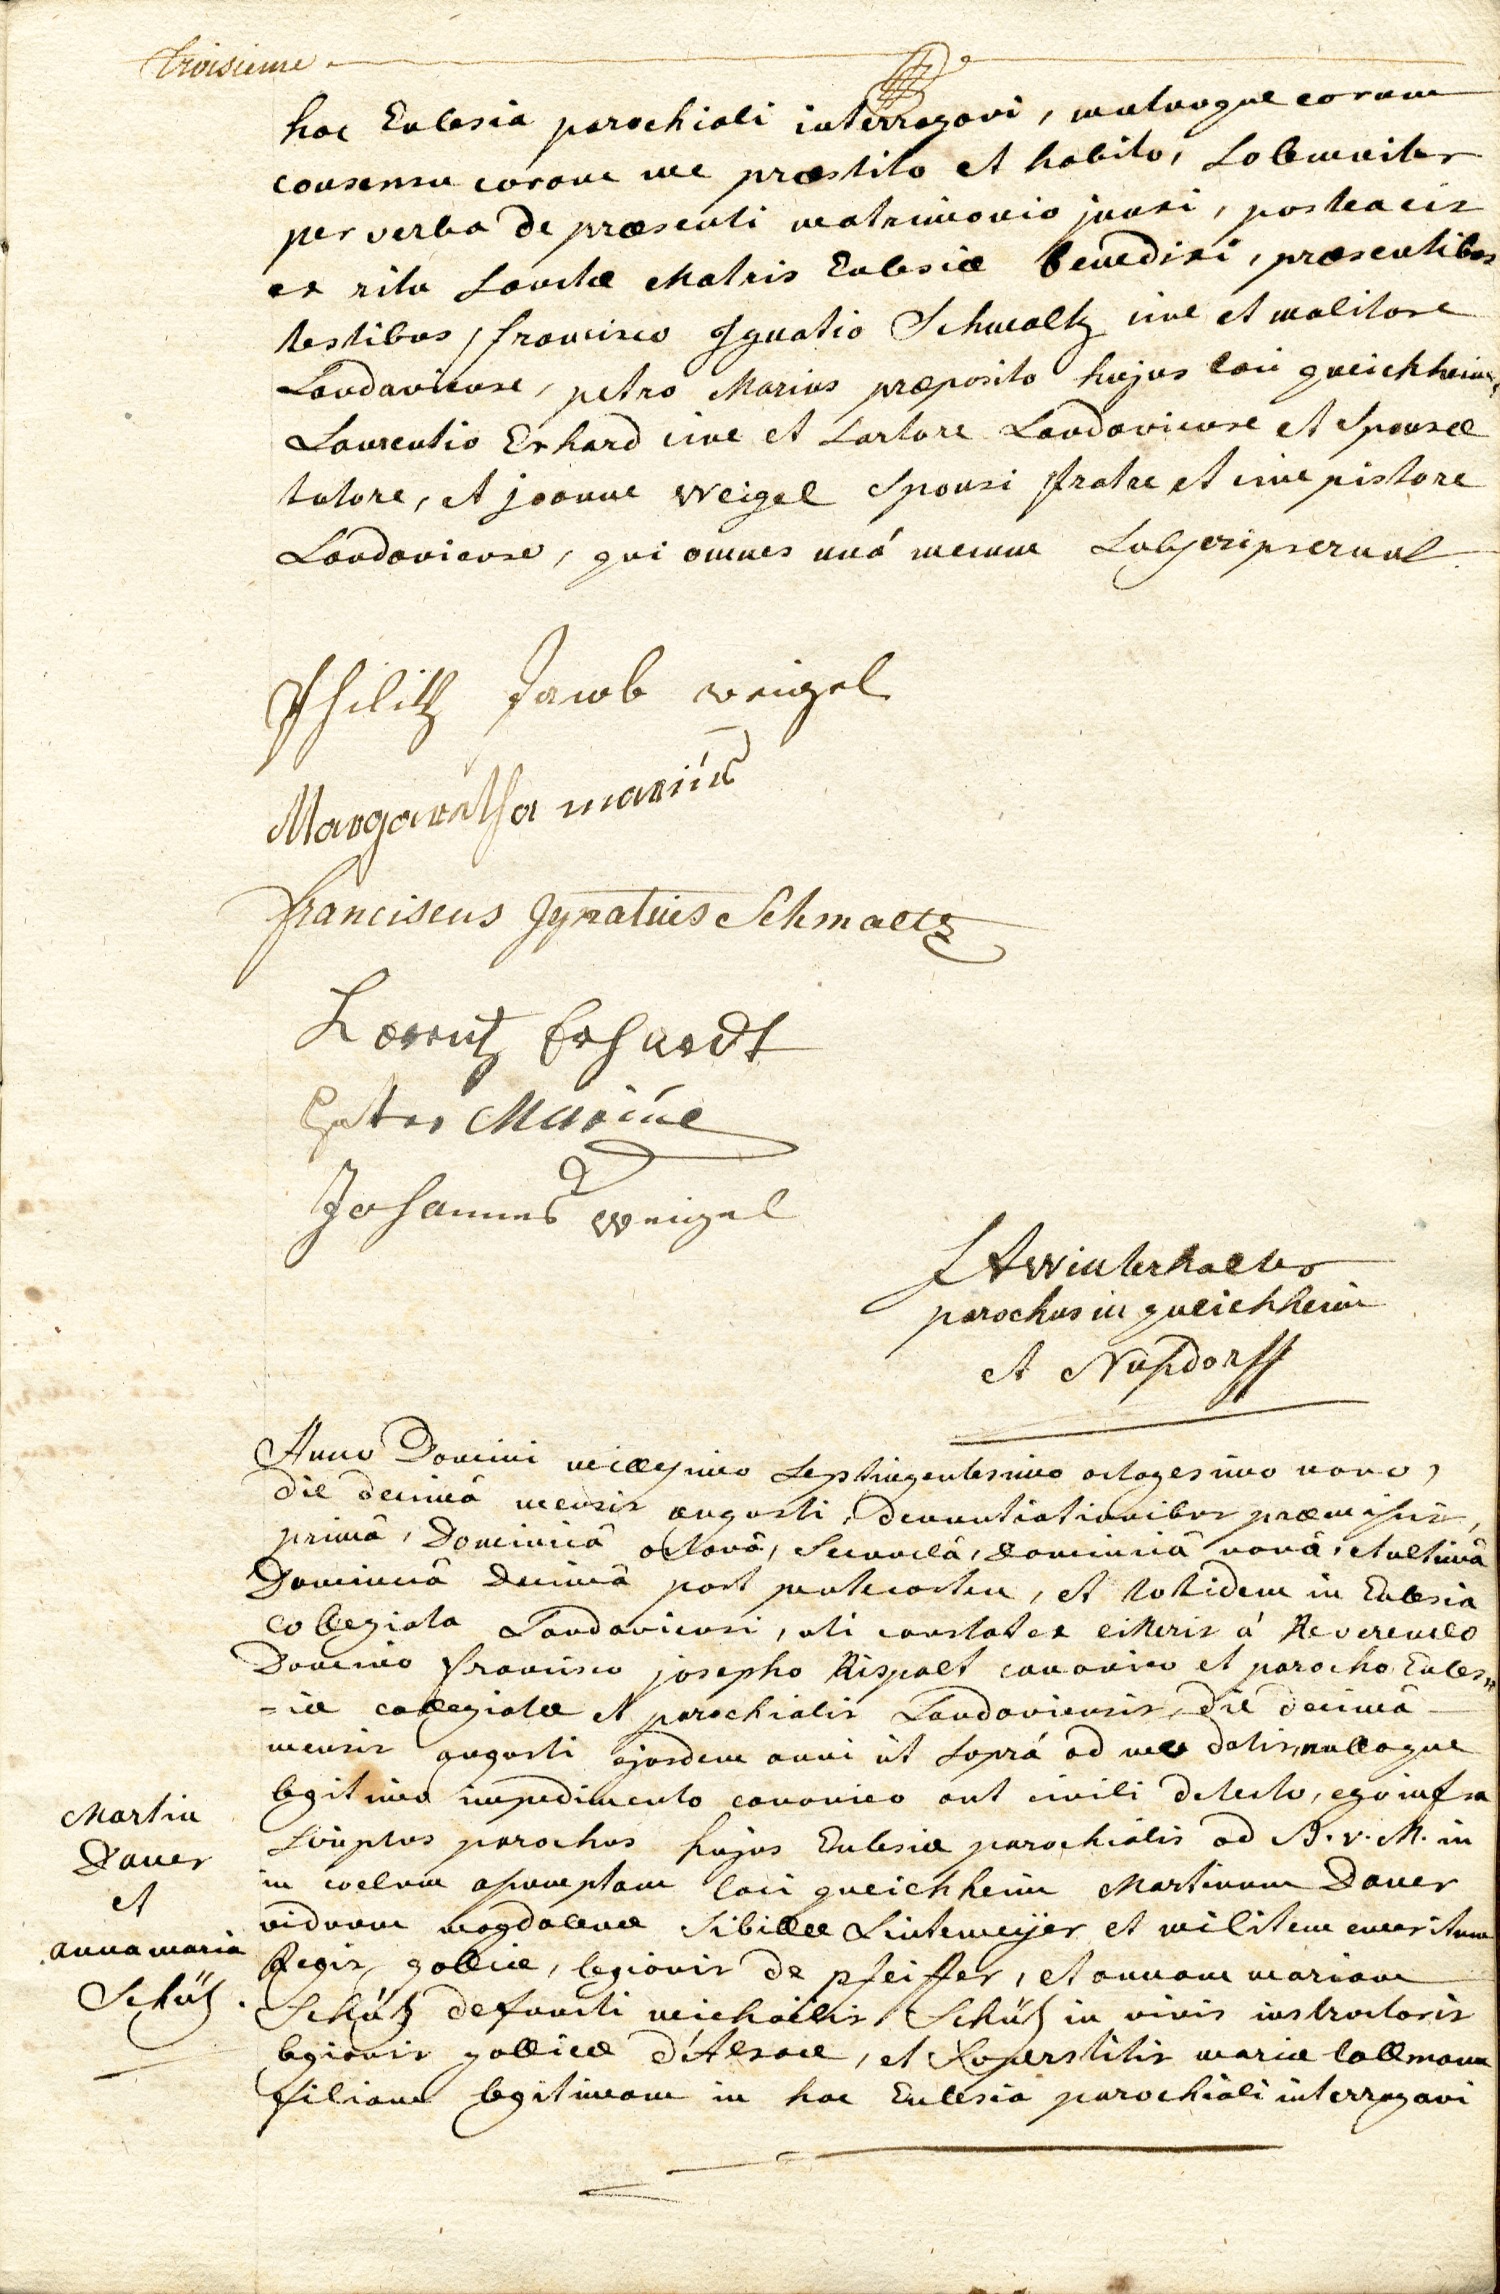 troisieme
hac Eclesia parochiali interrogavi, mutuoque eorum
consensu coram me præstito et habito, Solemniter
per verba de præsenti matrimonio junxi, postea eis
ex ritu Sanctæ Matris Eclesiæ benedixi, præsentibus
testibus, francisco Ignatio Schmaltz cive et molitore
Landaviense, petro Marius præposito hujus loci queichheim,
Laurentio Erhard cive et Sartore Landaviense et Sponsæ
tutore, et joanne Weigel Sponsi fratre et cive pistore
Landaviense, qui omnes unà mecum Subscripserunt
Philitz Jacob weigel
Margaretha mariús
franciscus Ignatius Schmaltz
Lorentz Erhardt
Peter Mariúe
Johannes weigel
Winterhalter
parochus in queichheim
et Nusdorff
Anno Domini millesimo Septingentesimo octogesimo nono,
die decimâ mensis augusti, denuntiationibus præmissis,
primâ, Dominicâ octavâ, Secundâ, Dominicâ nonâ, et ultimâ
Dominicâ decimâ post pentecosten, et totidem in Eclesia
collegiata Landaviensi, uti constat ex litteris à Reverendo
Domino francisco josepho Rispalt canonico et parocho Ecles=
=iæ collegiatæ et parochialis Landaviensis, die decimâ
mensis augusti ejusdem anni ut Suprà ad me datis, nulloque
legitimo impedimento canonico aut civili detecto, ego infra
Scriptus parochus hujus Eclesiæ parochialis ad B. v. M. in
in coelum assumptam loci queichheim Martinum Dauer
viduum magdalenæ Sibillæ Lintemeijer et militem emeritum
Regis galliæ, legionis de pfeiffer, et annam mariam
Schütz defuncti michaëlis Schütz in vivis instructoris
legionis gallicæ d'Alsace, et Superstitis mariæ lallmann
filiam legitimam in hac Eclesia parochiali interrogavi
Martin
Dauer
et
anna maria
Schütz.